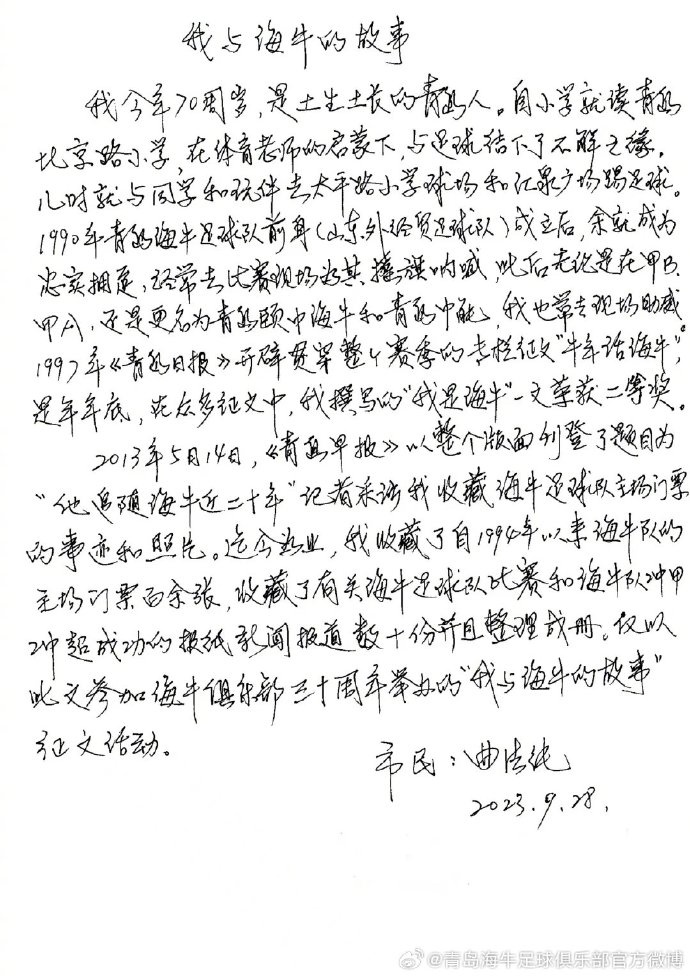 我与海牛的故事
我今年70周岁,是土生土长的青岛人。自小学就读青岛
北京路小学,在体育老师的启蒙下,与足球结下了不解之缘。
儿时就与同学和玩伴去太平路小学球场和汇泉广场踢足球。
1990年青岛海牛足球队前身(山东外经贸足球队)成立后,余就成为
忠实拥趸,经常去比赛现场为其摇旗呐喊,此后无论是在甲B、
甲A,还是更名为青岛颐中海牛和青岛中能,我也常去现场助威。
1997年《青岛日报》开辟贯穿整个赛季的专栏征文"牛年话海牛",
是年年底,在众多征文中,我撰写的"我是海牛"一文荣获二等奖。
2013年5月14日,《青岛早报》以整个版面刊登了题目为
"他追随海牛近二十年"记者采访我收藏海牛足球队主场门票
的事迹和照片。迄今为止,我收藏了自1994年以来海牛队的
主场门票百余张,收藏了有关海牛足球队比赛和海牛队冲甲
冲超成功的报纸新闻报道数十份并且整理成册。仅以
此文参加海牛俱乐部三十周年举办的"我与海牛的故事"
征文活动。
市民:曲法纯
2023.9.28.
@青岛海牛足球俱乐部官方微博